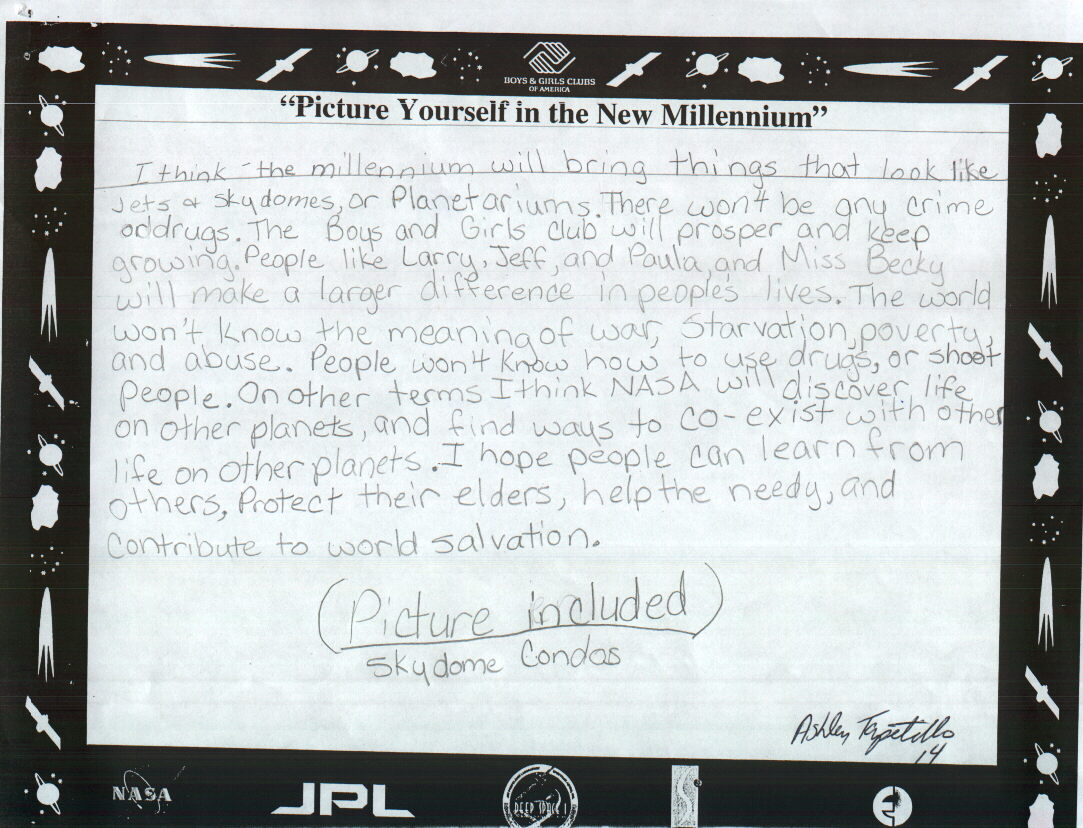 BOYS & GIRLS CLUBS
OF AMERICA
"Picture Yourself in the New Millennium"
I think the millennium will bring things that look like
Jets & skydomes, or Planetariums. There won't be any crime
or drugs. The Boys and Girls club will prosper and keep
growing. People like Larry, Jeff, and Paula, and Miss Becky
will make a larger difference in peoples lives. The world
won't know the meaning of war, Starvation, poverty,
and abuse. People won't know how to use drugs, or shoot
People. On other terms I think NASA will discover life
on other planets, and find ways to co-exist with other
life on other planets. I hope people can learn from
others, Protect their elders, help the needy, and
Contribute to world salvation.
(Picture included)
Skydome Condos
Ashley
14
NASA
JPL
DEEP SPACE 1